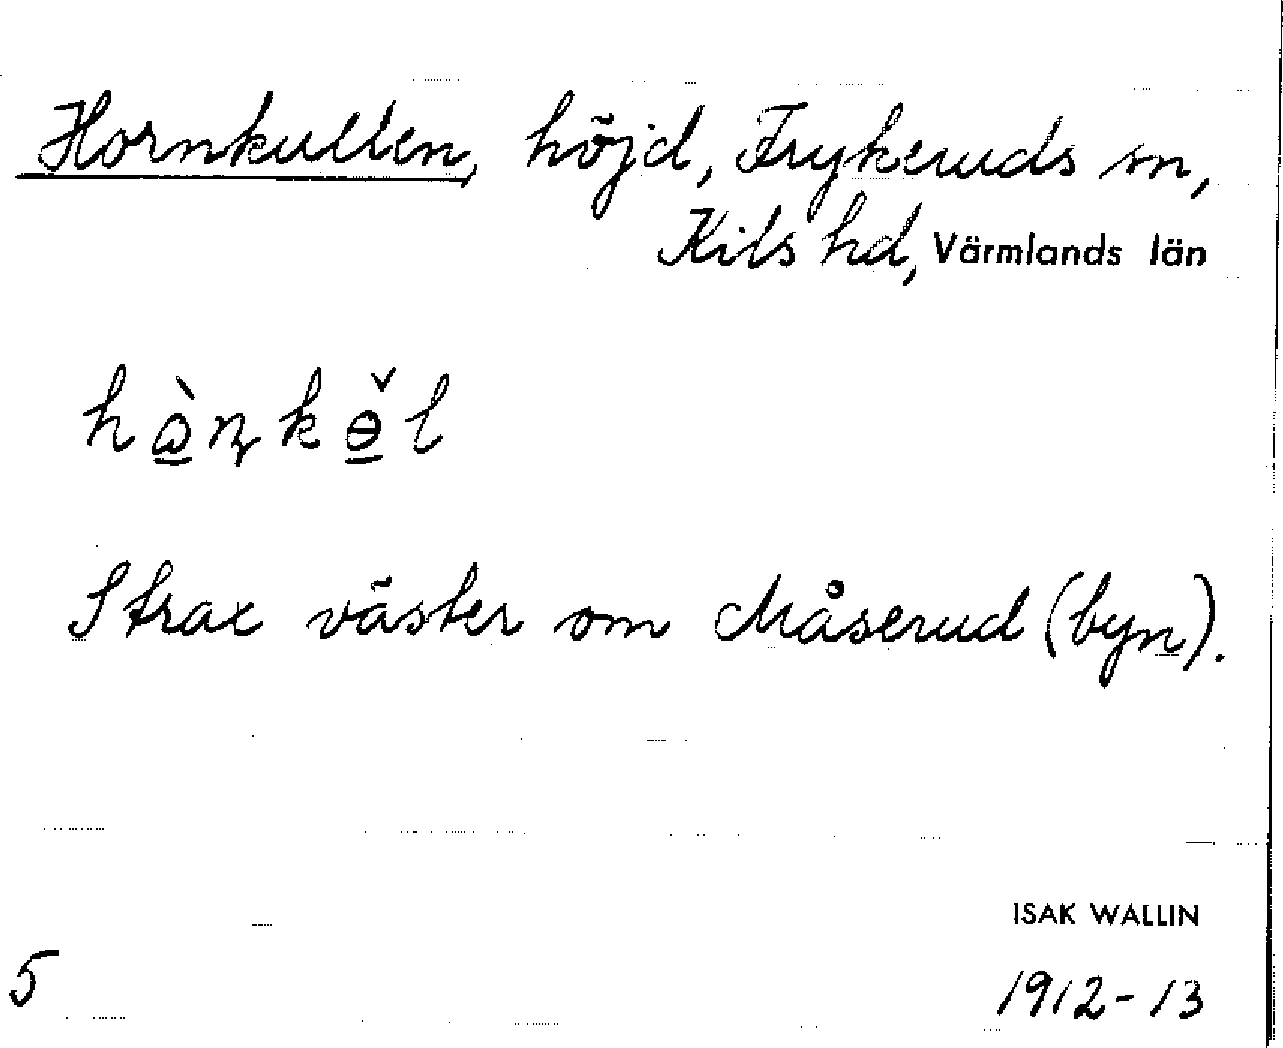 Hornkullen, höjd, Frykeruds sn,
Kils hd, Värmlands län
Strax väster om Måserud (byn).
ISAK WALLIN
5
1912-13